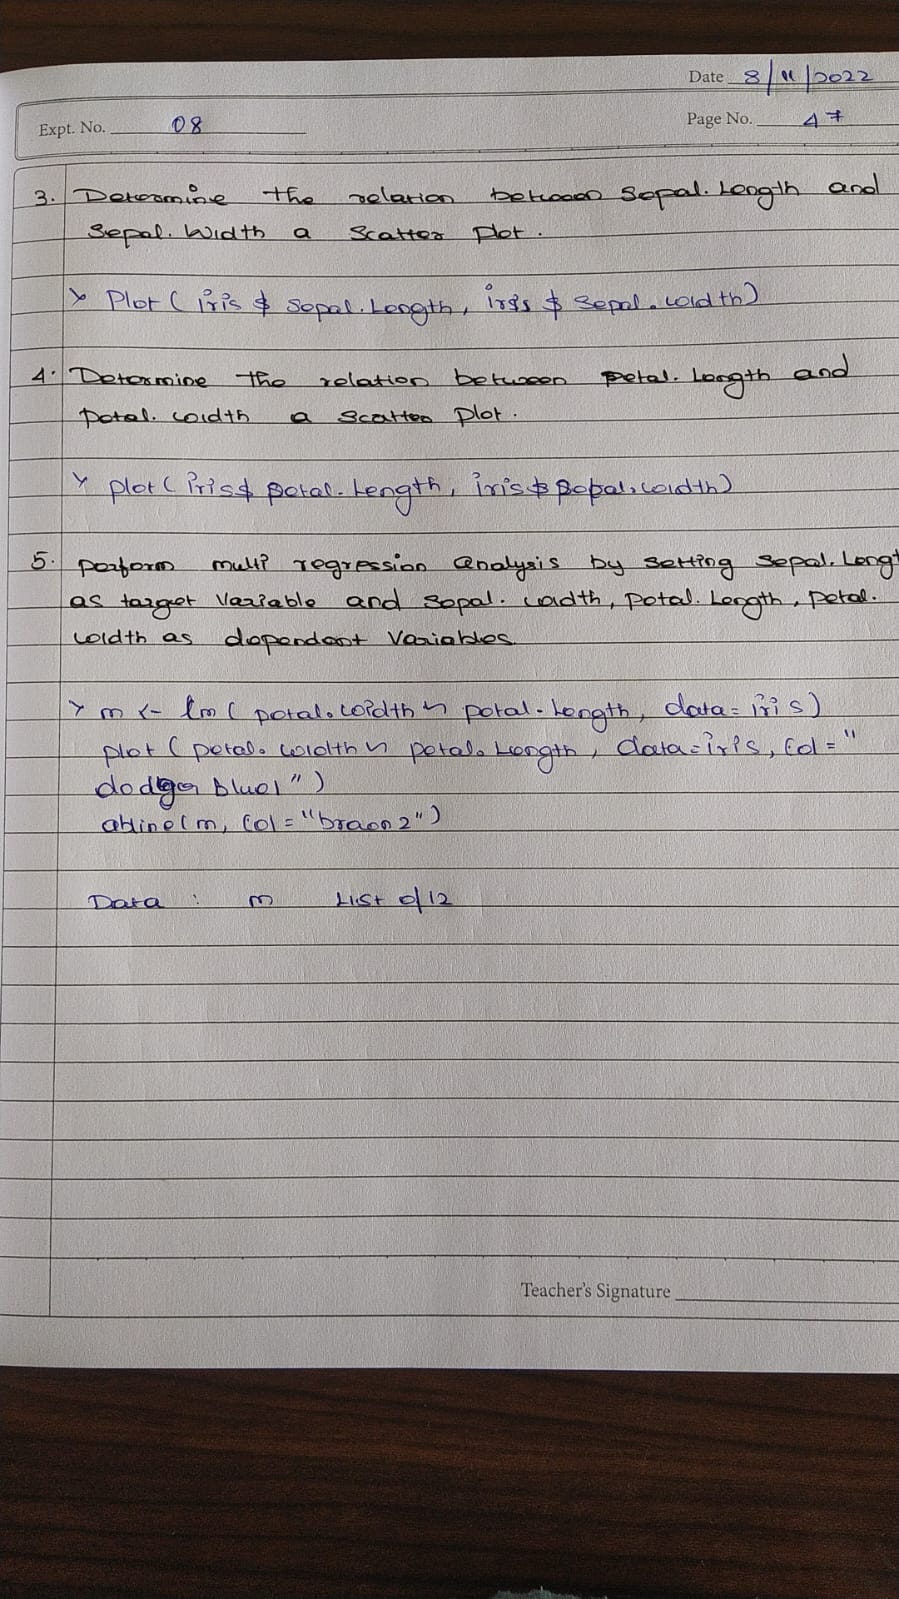 Date 8/11/2022
Expt. No. 08
Page No. 47
3. Determine the relation between Sepal.Length and
Sepal.Width a Scatter plot.
> Plot ( iris $ Sepal.Length, iris $ Sepal.width)
4. Determine the relation between petal.Length and
petal.width a scatter plot.
> plot ( iris$ petal.Length, iris$
5. perform multi regression analysis by setting Sepal.Lengt
as target variable and sepal.width, petal.Length, petal.
width as dependent variables.
> m <- lm ( petal.width ~ petal.Length, data = iris)
plot ( petal.width ~ petal.Length, data=iris, Col = "
dodger blue1")
abline(m, Col = "braon2")
Data : m List of 12
Teacher's Signature